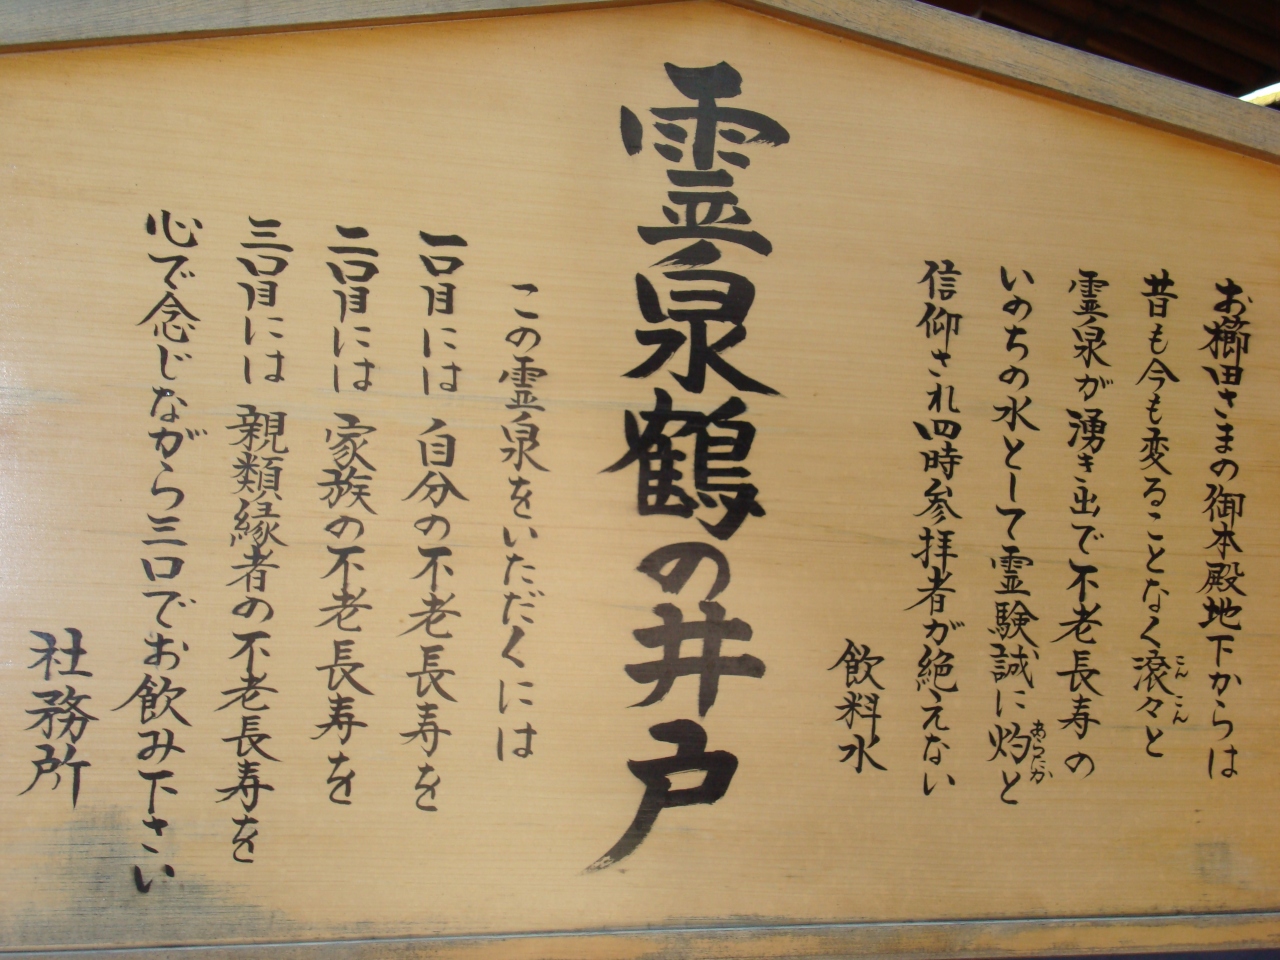 お櫛田さまの御本殿地下からは
昔も今も変ることなく滾々と
こんこん
霊泉が湧き出で不老長寿の
いのちの水として霊験誠に灼と
あらたか
信仰され四時参拝者が絶えない
飲料水
霊泉鶴の井戸
この霊泉をいただくには
一口目には 自分の不老長寿を
二口目には 家族の不老長寿を
三口目には 親類縁者の不老長寿を
心で念じながら三口でお飲み下さい
社務所